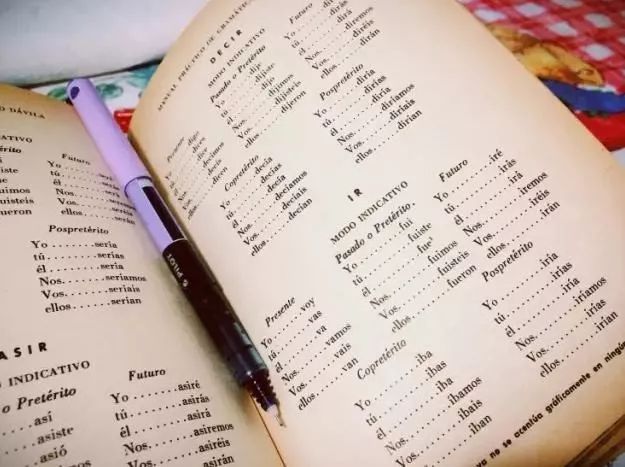 O DÁVILA
ICATIVO
érito
uimos
uisteis
ueron
Futuro
Yo ........ seré
tú ........ serás
él ........ será
Nos.
Vos.
ellos
Pospretérito
Yo ........ seria
tú ........ serias
él ........ seria
Nos. ........ seriamos
Vos. ........ seriais
ellos ........ serian
ASIR
INDICATIVO
o Pretérito
así
asiste
asió
Futuro
Yo ........ asiré
tú ........ asirás
él ........ asirá
Nos. ........ asiremos
Vos. ........ asiréis
ellos ........ asirán
PILOT
MANUAL PRÁCTICO DE GRAMÁTIC
DECIR
MODO INDICATIVO
Presente
digo
dices
dice
decimos
decís
dicen
Pasado o Pretérito
Yo ........ dije
tú ........ dijiste
él ........ dijo
Nos. ........ dijimos
Vos. ........ dijisteis
ellos ........ dijeron
Copretérito
Yo ........ decía
tú ........ decías
él ........ decía
Nos. ........ decíamos
Vos. ........ decíais
ellos ........ decían
Futuro
dirás
él ........ dirá
Nos. ........ diremos
Vos. ........ diréis
ellos ........ dirán
Pospretérito
Yo ........ diría
tú ........ dirías
él ........ diría
Nos. ........ diríamos
Vos. ........ diríais
ellos ........ dirían
IR
MODO INDICATIVO
Presente
Yo ........ voy
tú ........ vas
él ........ va
Nos. ........ vamos
Vos. ........ vais
ellos ........ van
Pasado o Pretérito.
Yo ........ fui
tú ........ fuiste
él ........ fue
Nos. ........ fuimos
Vos. ........ fuisteis
ellos ........ fueron
Copretérito
Yo ........ iba
tú ........ ibas
él ........ iba
Nos. ........ ibamos
Vos. ........ ibais
ellos ........ iban
Futuro
Yo ........ iré
tú ........ irás
él ........ irá
Nos. ........ iremos
Vos. ........ iréis
ellos ........ irán
Pospretérito
Yo ........ iría
tú ........ irías
él ........ iría
Nos. ........ iríamos
Vos. ........ iríais
ellos ........ irían
no se acentúa gráficamente en ningún